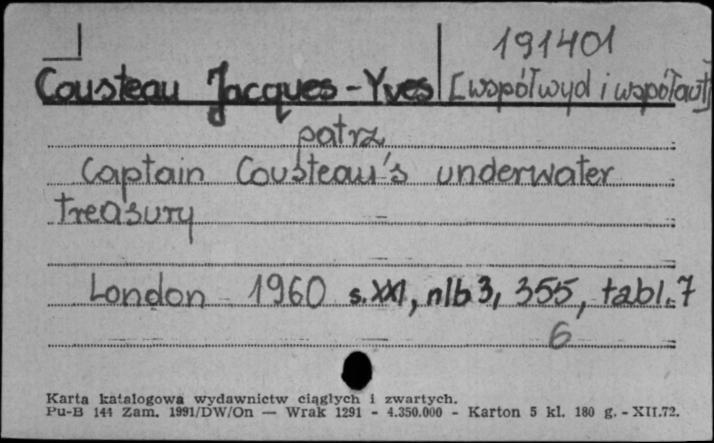 191401
Cousteau Jacques-Yves [współwyd i współaut]
patrz
Captain Cousteau's underwater
treasury
London 1960 s. XXI, nlb 3, 355, tabl. 7
6
Karta katalogowa wydawnictw ciągłych i zwartych.
Pu-B 144 Zam. 1991/DW/On — Wrak 1291 - 4.350.000 - Karton 5 kl. 180 g. - XII.72.